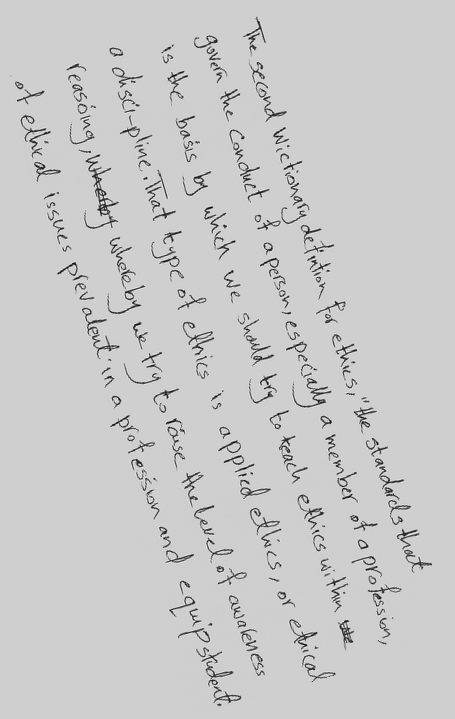 The second Wictionary defintion for ethics, "the standards that
govern the conduct of a person, especially a member of a profession,
is the basis by which we should try to teach ethics within
a disci-pline. That type of ethics is applied ethics, or ethical
reasoing, whereby we try to raise the level of awareness
of ethical issues prevalent in a profession and equip student.